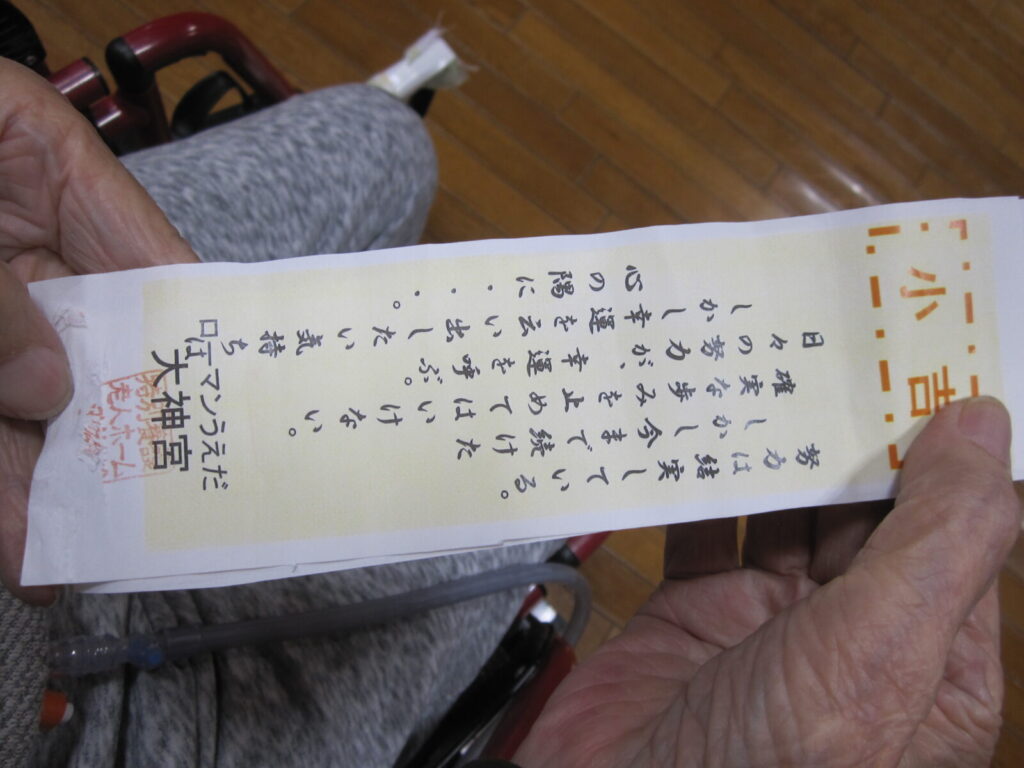 小吉
努力は結実している。
しかし今まで続けた
確実な歩みを止めてはいけない。
日々の努力が、幸運を呼ぶ。
しかし幸運を云い出したい気持ちは
心の隅に・・・。
ローマンうえだ
大神宮
老人ホーム